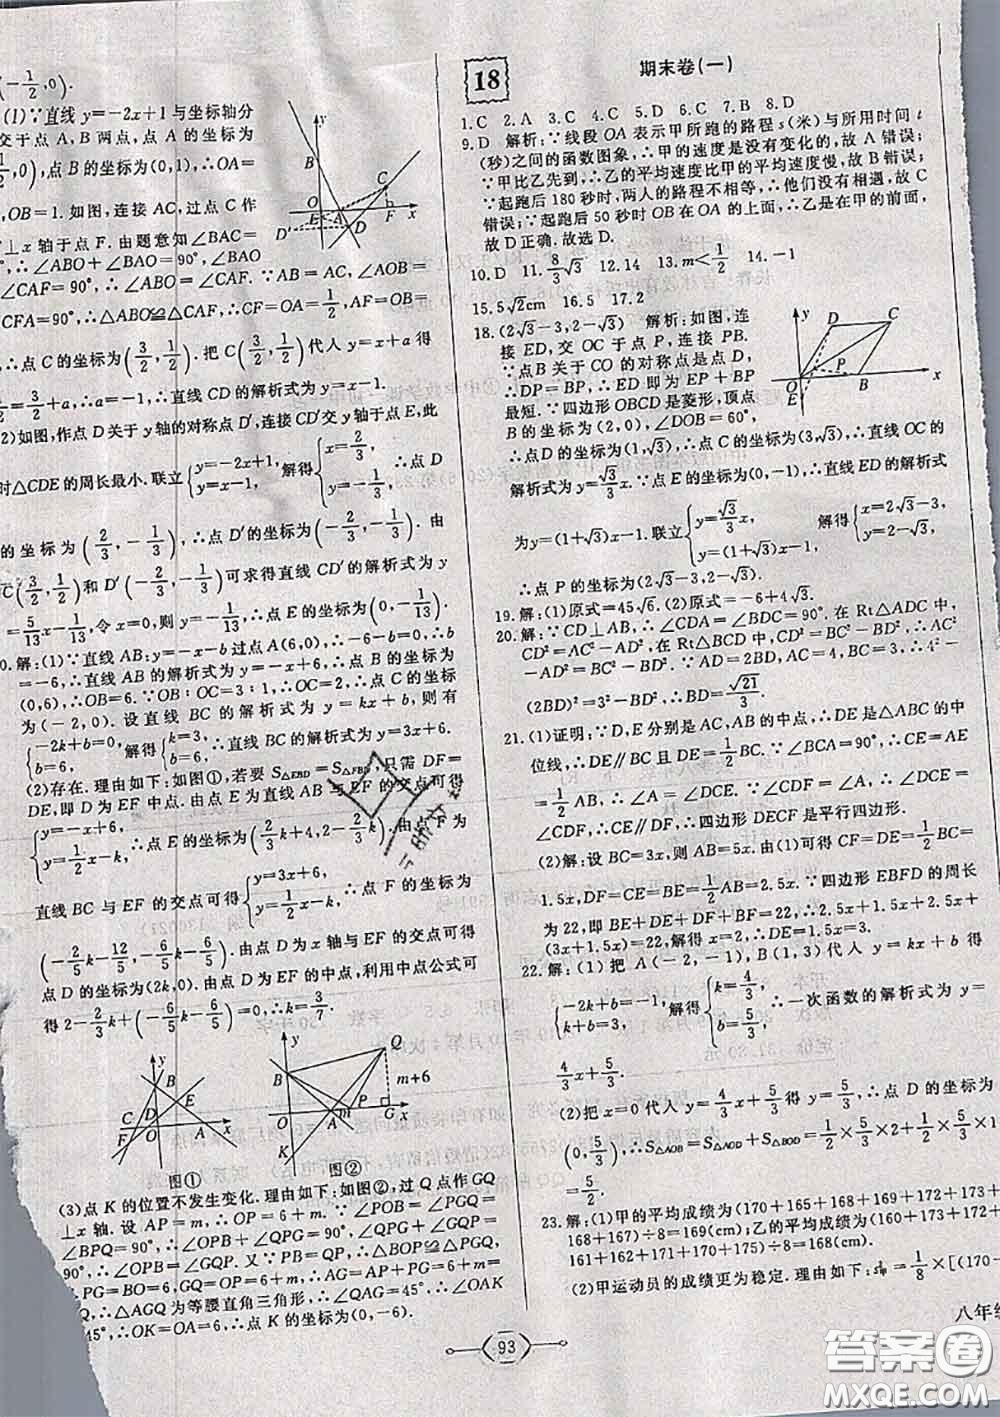 (-1/2,0).
(1)∵直线 y=-2x+1 与坐标轴分
交于点 A,B 两点,点 A 的坐标为
1/2,0),点 B 的坐标为(0,1),∴OA=
,OB=1. 如图,连接 AC,过点 C 作
⊥x 轴于点 F. 由题意知∠BAC=
∴∠ABO+∠BAO=90°,∠BAO
∠CAF=90°. ∴∠ABO=∠CAF
=∠CAF. ∵AB=AC,∠AOB=
CFA=90°,∴△ABO≌△CAF,∴CF=OA=1/2,AF
∴点 C 的坐标为(3/2,1/2). 把 C(3/2,1/2)代入 y=x+a 得
=3/2+a,∴a=-1,∴直线 CD 的解析式为 y=x-1.
2)如图,作点 D 关于 y 轴的对称点 D′,连接 CD′交 y 轴于点 E,此
时△CDE 的周长最小. 联立{y=-2x+1, y=x-1, 解得{x=2/3, y=-1/3, ∴点 D
的坐标为(2/3,-1/3),∴点 D′的坐标为(-2/3,-1/3). 由
C(3/2,1/2)和 D′(-2/3,-1/3)可求得直线 CD′的解析式为 y
=5/13x-1/13,令 x=0,则 y=-1/13,∴点 E 的坐标为(0,-1/13).
0.解:(1)∵直线 AB:y=-x-b 过点 A(6,0),∴-6-b=0,b
=-6,∴直线 AB 的解析式为 y=-x+6,∴点 B 的坐标为
(0,6),∴OB=6. ∵OB∶OC=3∶1,∴OC=2,∴点 C 的坐标
为(-2,0). 设直线 BC 的解析式为 y=kx+b,则有
{-2k+b=0, b=6, 解得{k=3, b=6, ∴直线 BC 的解析式为 y=3x+6.
(2)存在. 理由如下:如图①,若要 S△EBD=S△FBD,只需 DF=
DE,即 D 为 EF 中点. 由点 E 为直线 AB 与 EF 的交点可得
{y=-x+6, y=1/2x-k, ∴点 E 的坐标为(2/3k+4,2-2/3k). 由点 F 为
直线 BC 与 EF 的交点可得{y=3x+6, y=1/2x-k, ∴点 F 的坐标为
(-2/5k-12/5,-6/5k-6/5). 由点 D 为 x 轴与 EF 的交点可得
点 D 的坐标为(2k,0). 由点 D 为 EF 的中点,利用中点公式可
得 2-2/3k+(-6/5k-6/5)=0,∴k=3/7.
图① 图②
(3)点 K 的位置不发生变化. 理由如下:如图②,过 Q 点作 GQ
⊥x 轴. 设 AP=m,∴OP=6+m. ∵∠POB=∠PGQ=
∠BPQ=90°,∴∠OPB+∠QPG=90°,∠QPG+∠GQP=
90°,∴∠OPB=∠GQP. 又∵PB=QP,∴△BOP≌△PGQ,
∴PG=BO=6,OP=GQ=6+m,∴AG=AP+PG=6+m,∴AG
=GQ,∴△AGQ 为等腰直角三角形,∴∠QAG=45°,∴∠OAK
=45°,∴OK=OA=6,∴点 K 的坐标为(0,-6).
18 期末卷(一)
1.C 2.A 3.C 4.C 5.D 6.C 7.B 8.D
9.D 解析:∵线段 OA 表示甲所跑的路程 s(米)与所用时间 t
(秒)之间的函数图象,∴甲的速度是没有变化的,故 A 错误;
∵甲比乙先到,∴乙的平均速度比甲的平均速度慢,故 B 错误;
∵起跑后 180 秒时,两人的路程不相等,∴他们没有相遇,故 C
错误;∵起跑后 50 秒时 OB 在 OA 的上面,∴乙是在甲的前面,
故 D 正确. 故选 D.
10.D 11.8/3√3 12.14 13.m<1/2 14.-1
15.5√2cm 16.5 17.2
18.(2√3-3,2-√3) 解析:如图,连
接 ED,交 OC 于点 P,连接 PB.
∵点 B 关于 CO 的对称点是点 D,
∴DP=BP,∴ED 即为 EP+BP
最短. ∵四边形 OBCD 是菱形,顶点
B 的坐标为(2,0),∠DOB=60°,
∴点 D 的坐标为(1,√3),∴点 C 的坐标为(3,√3),∴直线 OC 的
解析式为 y=√3/3x. ∵点 E 的坐标为(0,-1),∴直线 ED 的解析式
为 y=(1+√3)x-1. 联立{y=√3/3x, y=(1+√3)x-1, 解得{x=2√3-3, y=2-√3.
∴点 P 的坐标为(2√3-3,2-√3).
19.解:(1)原式=45√6. (2)原式=-6+4√3.
20.解:∵CD⊥AB,∴∠CDA=∠BDC=90°. 在 Rt△ADC 中,
CD²=AC²-AD²,在 Rt△BDC 中,CD²=BC²-BD²,∴AC²
-AD²=BC²-BD². ∵AD=2BD,AC=4,BC=3,∴4²-
(2BD)²=3²-BD²,∴BD=√21/3.
21.(1)证明:∵D,E 分别是 AC,AB 的中点,∴DE 是△ABC 的中
位线,∴DE∥BC 且 DE=1/2BC. ∵∠BCA=90°,∴CE
=1/2AB=AE,∴∠A=∠DCE. ∵∠CDF=∠A,∴∠DCE=
∠CDF,∴CE∥DF,∴四边形 DECF 是平行四边形.
(2)解:设 BC=3x,则 AB=5x. 由(1)可得 DE=CF=1/2BC=
1.5x,DF=CE=BE=1/2AB=2.5x. ∵四边形 EBFD 的周长
为 22,即 BE+DE+DF+BF=22,∴2.5x+1.5x+2.5x+
(3x+1.5x)=22,解得 x=2,∴DE=1.5x=3.
22.解:(1)把 A(-2,-1),B(1,3)代入 y=kx+b 得
{-2k+b=-1, k+b=3, 解得{k=4/3, b=5/3, ∴一次函数的解析式为 y=
4/3x+5/3.
(2)把 x=0 代入 y=4/3x+5/3得 y=5/3,∴点 D 的坐标为
(0,5/3),∴S△AOB=S△AOD+S△BOD=1/2×5/3×2+1/2×5/3×1
=5/2.
23.解:(1)甲的平均成绩为(170+165+168+169+172+173+
168+167)÷8=169(cm);乙的平均成绩为(160+173+172+
161+162+171+170+175)÷8=168(cm).
(2)甲运动员的成绩更为稳定. 理由如下:s²甲=1/8×[(170-
93
八年级
答案圈
MXQE.COM